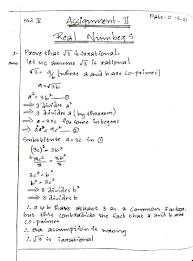 Std X Assignment - II Date - 2
Real Numbers
1- Prove that √3 is irrational.
Ans let us assume √3 is rational
√3 = a/b [where a and b are co-primes]
a = √3b
a² = 3b²
⇒ 3 divides a²
⇒ 3 divides a (by theorem)
⇒ a = 3c for some integer
Substitute a = 3c in ①
(3c)² = 3b²
3c² = b²
b² = 3c²
⇒ 3 divides b²
⇒ 3 divides b
∴ a & b have atleast 3 as a common factor
but this contradicts the fact that a and b are
co-primes
∴ Our assumption is wrong
∴ √3 is irrational